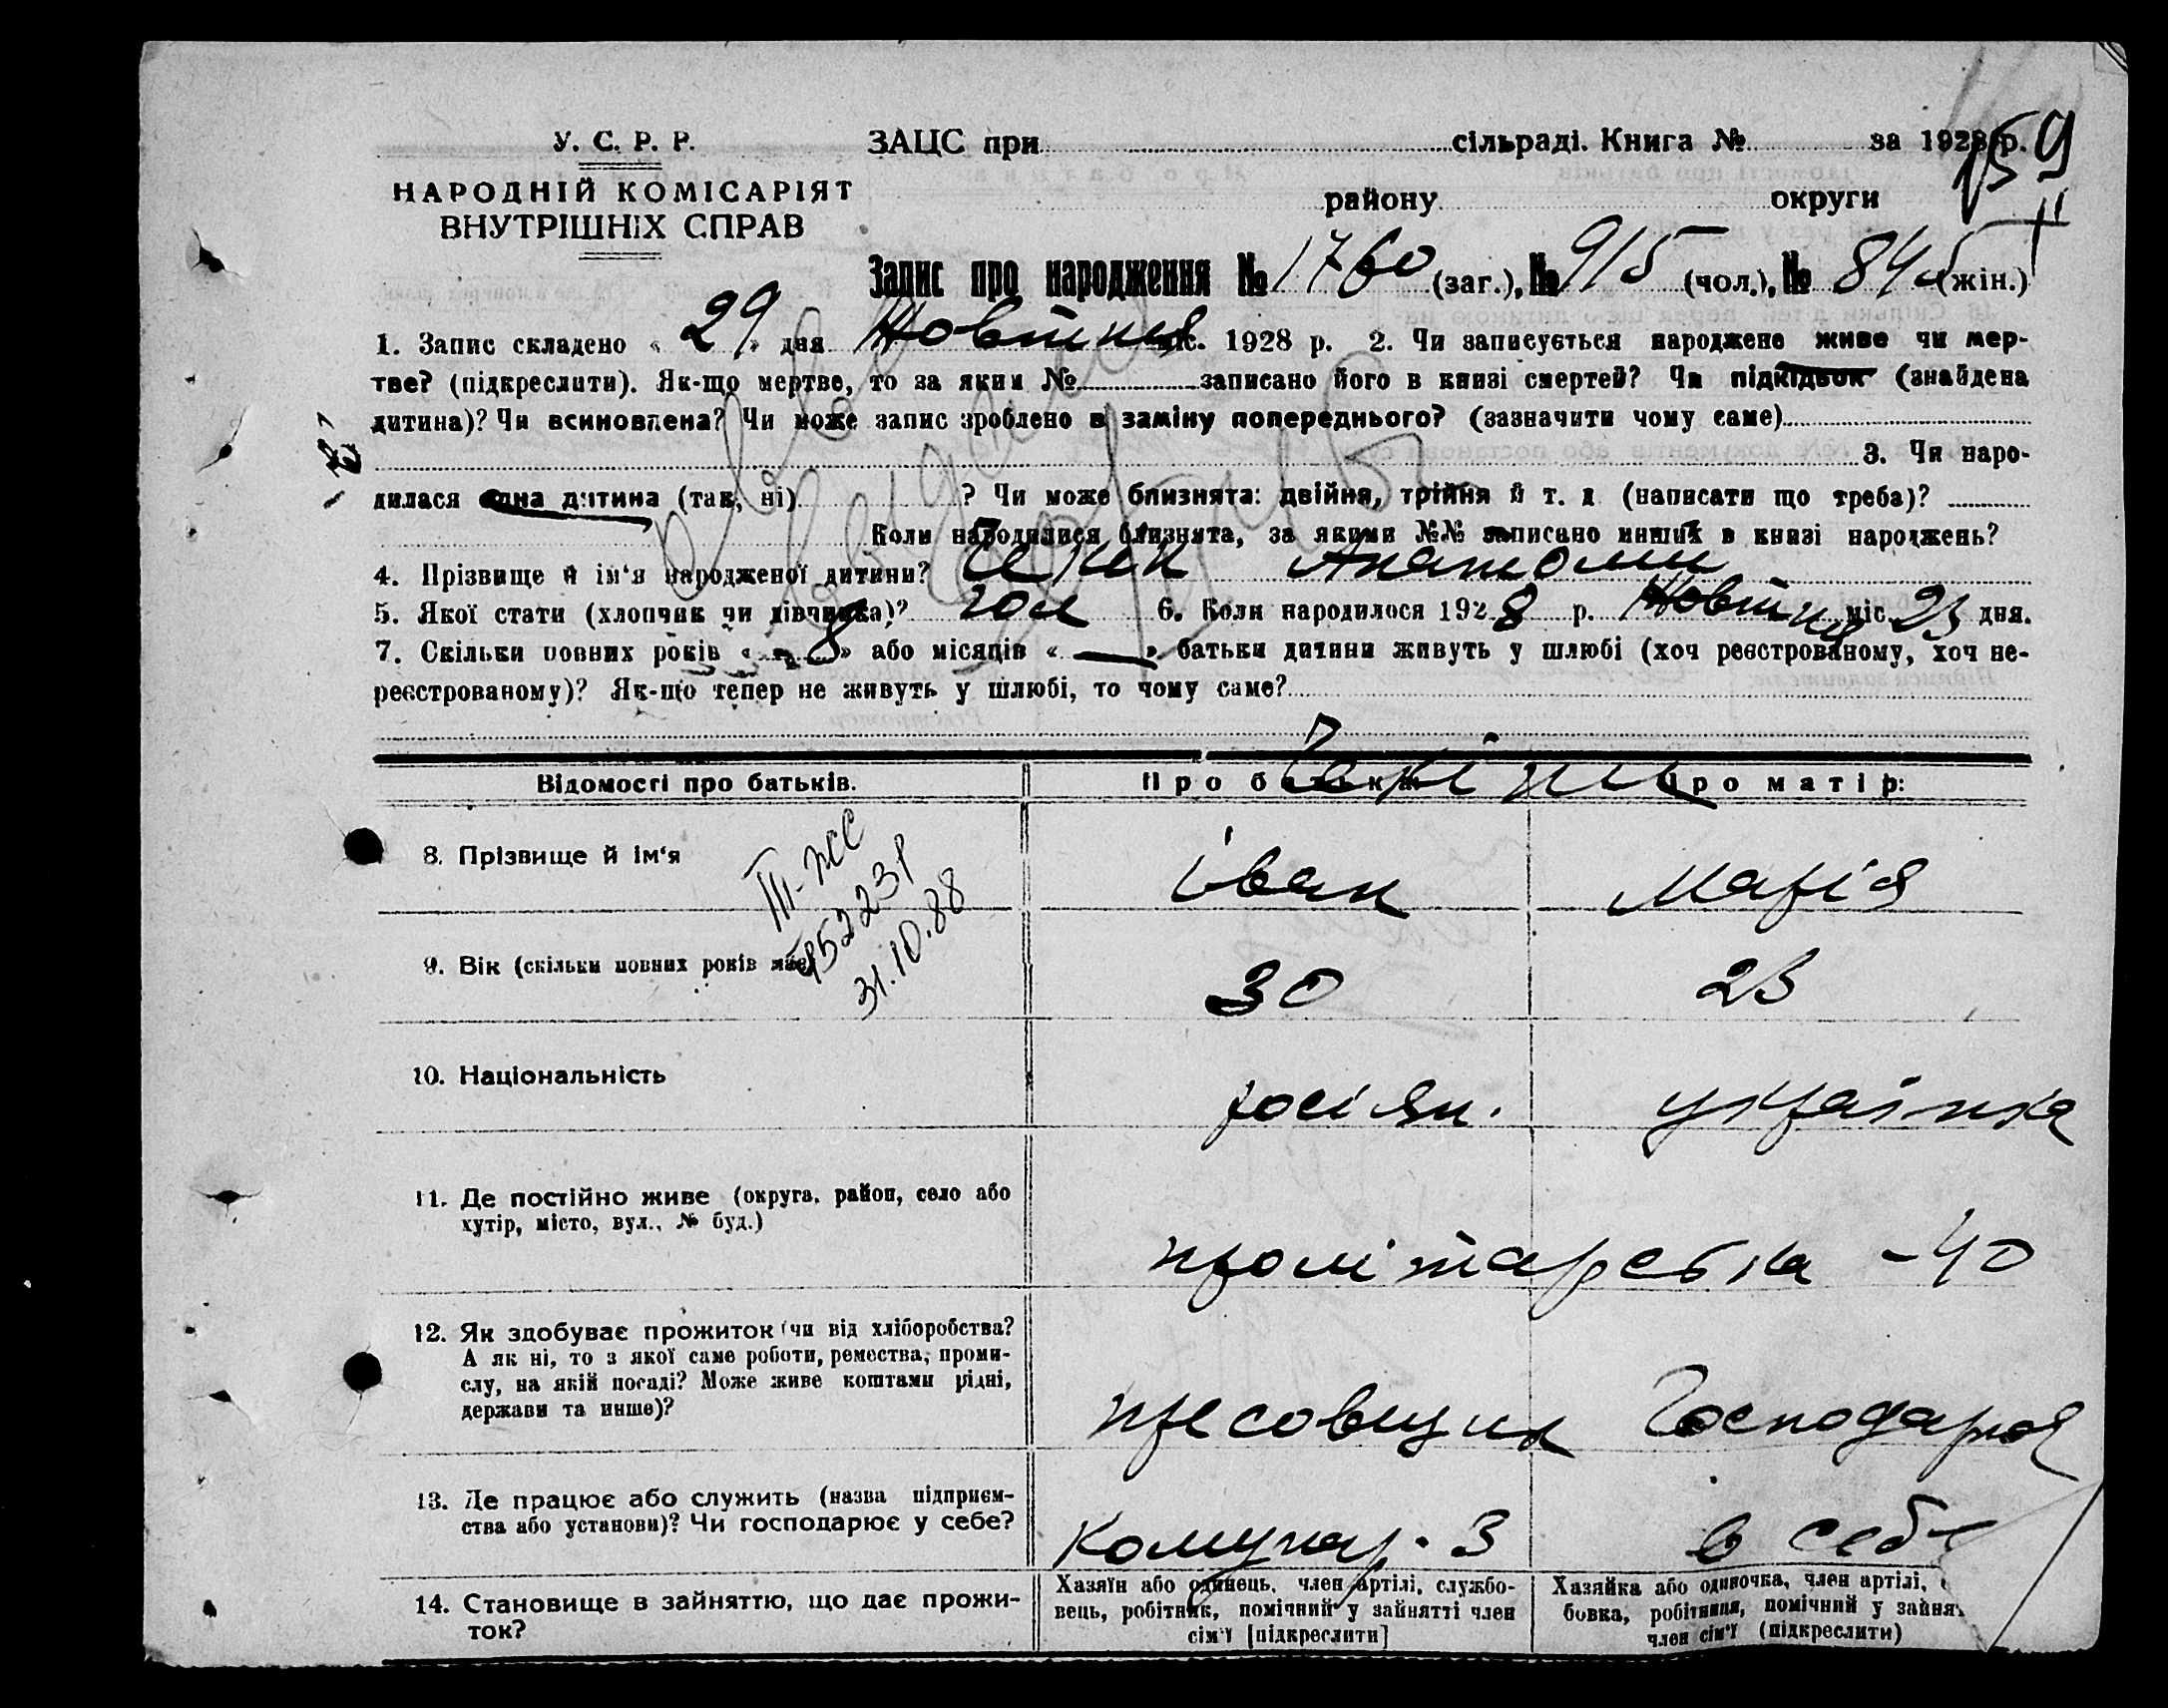 159
У. С. Р. Р. ЗАЦС при сільраді. Книга № за 1928 р.
НАРОДНІЙ КОМІСАРІЯТ району округи
ВНУТРІШНІХ СПРАВ
Запис про народження № 1760 (заг.), № 915 (чол.), № 845 (жін.)
1. Запис складено « 29 » дня Жовтня міс. 1928 р. 2. Чи записується народжене живе чи мер-
тве? (підкреслити). Як-що мертве, то за яким № записано його в книзі смертей? Чи підкідьок (знайдена
дитина)? Чи всиновлена? Чи може запис зроблено в заміну попереднього? (зазначити чому саме)
3. Чи наро-
дилася одна дитина (так, ні) ? Чи може близнята: двійня, трійня й т. д (написати що треба)?
Коли народилися близнята, за якими №№ записано инших в книзі народжень?
4. Прізвище й ім'я народженої дитини? Анатолий
5. Якої стати (хлопчик чи дівчинка)? чол 6. Коли народилося 1928 р. Жовтня міс. 23 дня.
7. Скільки повних років « 8 » або місяців « — » батьки дитини живуть у шлюбі (хоч реєстрованому, хоч не-
реєстрованому)? Як-що тепер не живуть у шлюбі, то чому саме?
Відомості про батьків. Про батька: Про матір:
8. Прізвище й ім'я Іван Марія
III-ЖС
452231
31.10.88
9. Вік (скільки повних років має) 30 23
10. Національність росіян. українка
11. Де постійно живе (округа, район, село або
хутір, місто, вул., № буд.)
пролітарська - 40
12. Як здобуває прожиток (чи від хліборобства?
А як ні, то з якої саме роботи, ремества, проми-
слу, на якій посаді? Може живе коштами рідні,
держави та инше)?
пресовщик Господарка
13. Де працює або служить (назва підприєм-
ства або установи)? Чи господарює у себе?
Комунар. З в себе
14. Становище в зайняттю, що дає прожи-
ток?
Хазяїн або одинець, член артілі, службо-
вець, робітник, помічний у зайнятті член
сім'ї [підкреслити]
Хазяйка або одиночка, член артілі,
бовка, робітниця, помічний у зайня
член сім'ї (підкреслити)